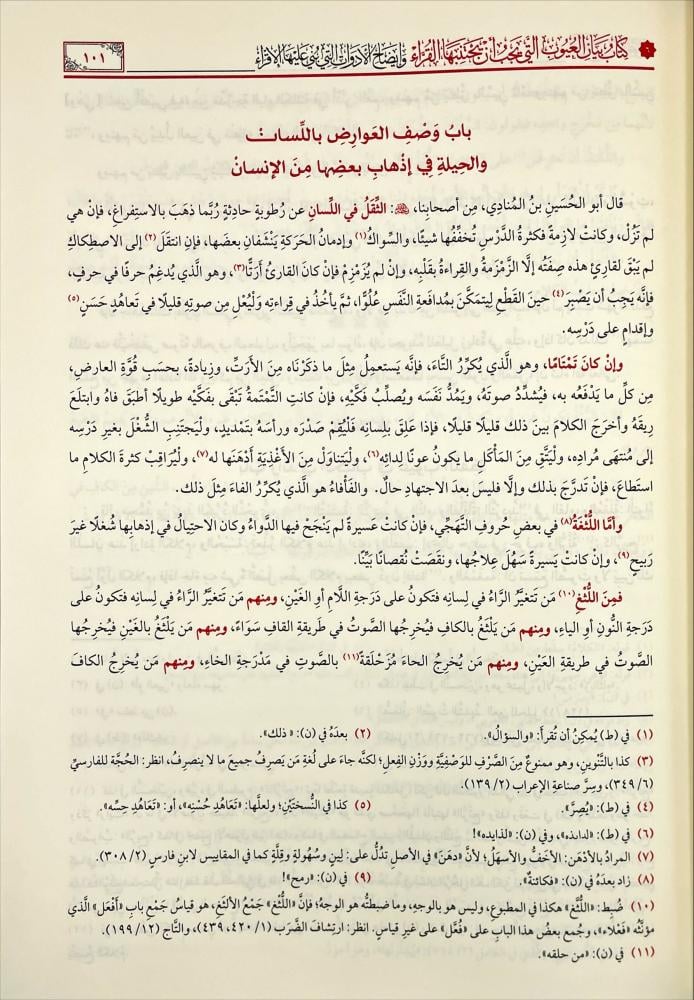 كتابُ بيانِ العيوبِ التي يجبُ أن يجتنبَها القُرّاء وإيضاحِ الأدواتِ التي بُنيَ عليها الإقراء
١٠١
بابُ وَصْفِ العَوارِضِ باللِّسانِ
والحِيلةِ في إذْهابِ بعضِها مِنَ الإنسانْ
قال أبو الحُسَينِ بنُ المُنادِي، مِن أصحابِنا، ﷺ: الثِّقَلُ في اللِّسانِ عن رُطوبةٍ حادِثةٍ رُبَّما ذهَبَ بالاستِفراغِ، فإنْ هي
لم تَزُلْ، وكانت لازِمةً فكثرةُ الدَّرْسِ تُخفِّفُها شيئًا، والسِّواكُ(١) وإدمانُ الحَرَكةِ يَنْشَفانِ بعضَها، فإنِ انتقَلَ(٢) إلى الاصطِكاكِ
لم يَبْقَ لقارِئٍ هذه صِفَتُه إلَّا الزَّمْزَمةُ والقِراءةُ بقَلْبِه، وإنْ لم يُزَمْزِمْ فإن كانَ القارئُ أَرَتًّا(٣)، وهو الَّذي يُدغِمُ حرفًا في حرفٍ،
فإنَّه يَجِبُ أن يَصْبِرَ(٤) حينَ القَطْعِ لِيتمَكَّنَ بمُدافَعةِ النَّفَسِ عُلُوًّا، ثمَّ يأخُذُ في قِراءتِه ولْيُعْلِ مِن صوتِه قليلًا في تَعاهُدٍ حَسَنٍ(٥)
وإقدامٍ على دَرْسِه.
وإنْ كانَ تَمْتامًا، وهو الَّذي يُكرِّرُ التَّاءَ، فإنَّه يَستعمِلُ مِثلَ ما ذكَرْناه مِنَ الأَرَتِّ، وزيادةً، بحسَبِ قُوَّةِ العارِضِ،
مِن كلِّ ما يَدْفَعُه به، فيُشدِّدُ صوتَهُ، ويَمُدُّ نَفَسَه ويُصلِّبُ فَكَّيْهِ، فإنْ كانتِ التَّمْتَمةُ تَبْقَى بفَكَّيْه طويلًا أطبَقَ فاهُ وابتلَعَ
رِيقَهُ وأخرَجَ الكلامَ بينَ ذلك قليلًا قليلًا، فإذا عَلِقَ بلِسانِه فَلْيُقِمْ صَدْرَه ورأسَهُ بتَمْديدٍ، ولْيَجتنِبِ الشُّغْلَ بغيرِ دَرْسِه
إلى مُنتهَى مُرادِه، ولْيَتَّقِ مِنَ المَأكَلِ ما يكونُ عونًا لِدائِه(٦)، ولْيَتناوَلْ مِنَ الأَغْذِيةِ أَدْهَنَها له(٧)، ولْيُراقِبْ كثرةَ الكلامِ ما
استَطاعَ، فإنْ تَدرَّجَ بذلك وإلَّا فليسَ بعدَ الاجتِهادِ حالٌ. والفَأْفاءُ هو الَّذي يُكرِّرُ الفاءَ مِثلَ ذلك.
وأمَّا اللُّثْغَةُ(٨) في بعضِ حُروفِ التَّهَجِّي، فإنْ كانت عَسيرةً لم يَنْجَعْ فيها الدَّواءُ وكان الاحتِيالُ في إذهابِها شُغلًا غيرَ
رَبيحٍ(٩)، وإنْ كانتْ يَسيرةً سَهُلَ عِلاجُها، ونقَصَتْ نُقصانًا بَيِّنًا.
فمِنَ اللُّثْغِ(١٠) مَن تَتغيَّرُ الرَّاءُ في لِسانِه فتكونُ على دَرَجةِ اللَّامِ أو الغَيْنِ، ومِنهم مَن تَتغيَّرُ الرَّاءُ في لِسانِه فتكونُ على
دَرَجةِ النُّونِ أو الياءِ، ومِنهم مَن يَلْثَغُ بالكافِ فيُخرِجُها الصَّوتُ في طَريقةِ القافِ سَوَاءً، ومِنهم مَن يَلْثَغُ بالغَيْنِ فيُخرِجُها
الصَّوتُ في طَريقةِ العَيْنِ، ومِنهم مَن يُخرِجُ الحاءَ مُزَحْلَقةً(١١) بالصَّوتِ في مَدْرَجةِ الخاءِ، ومِنهم مَن يُخرِجُ الكافَ
(١) في (ط) يُمكِنُ أن تُقرأَ: «والسؤالُ».
(٢) بعدَهُ في (ن): «ذلك».
(٣) كذا بالتَّنْوينِ، وهو ممنوعٌ مِنَ الصَّرْفِ للوَصْفيَّةِ ووَزْنِ الفِعلِ؛ لكنَّه جاءَ على لُغةِ مَن يَصرِفُ جميعَ ما لا ينصرِفُ، انظر: الحُجَّة للفارسيِّ
(٦/ ٣٤٩)، وسِرَّ صناعةِ الإعراب (٢/ ١٣٩).
(٤) في (ط): «يُصِرَّ».
(٥) كذا في النُّسختَيْنِ؛ ولعلَّها: «تَعَاهُدِ حُسْنِه»، أو: «تَعَاهُدِ حِسِّه».
(٦) في (ط): «الدانذه»، وفي (ن): «لذايده»!
(٧) المرادُ بالأدْهَنِ: الأخَفُّ والأسهَلُ؛ لأنَّ «دهنَ» في الأصلِ تدُلُّ على: لِينٍ وسُهولةٍ وقِلَّةٍ كما في المقاييسِ لابنِ فارسٍ (٢/ ٣٠٨).
(٨) زاد بعدَهُ في (ن): «فكائنةٌ».
(٩) في (ن): «رمح»!
(١٠) ضُبِط: «اللُّثَّغ» هكذا في المطبوعِ، وليس هو بالوجهِ، وما ضبطتُه هو الوجهُ؛ فإنَّ «اللُّثْغَ» جَمْعُ الألثغِ، هو قياسُ جَمْعِ بابِ «أَفْعَل» الَّذي
مؤنَّثُه «فَعْلاء»، وجُمع بعضُ هذا البابِ على «فُعَّل» على غيرِ قياسٍ. انظر: ارتشافَ الضَّرَبِ (١/ ٤٢٠، ٤٣٩)، والتَّاج (١٢/ ١٩٩).
(١١) في (ن): «من حلقه».